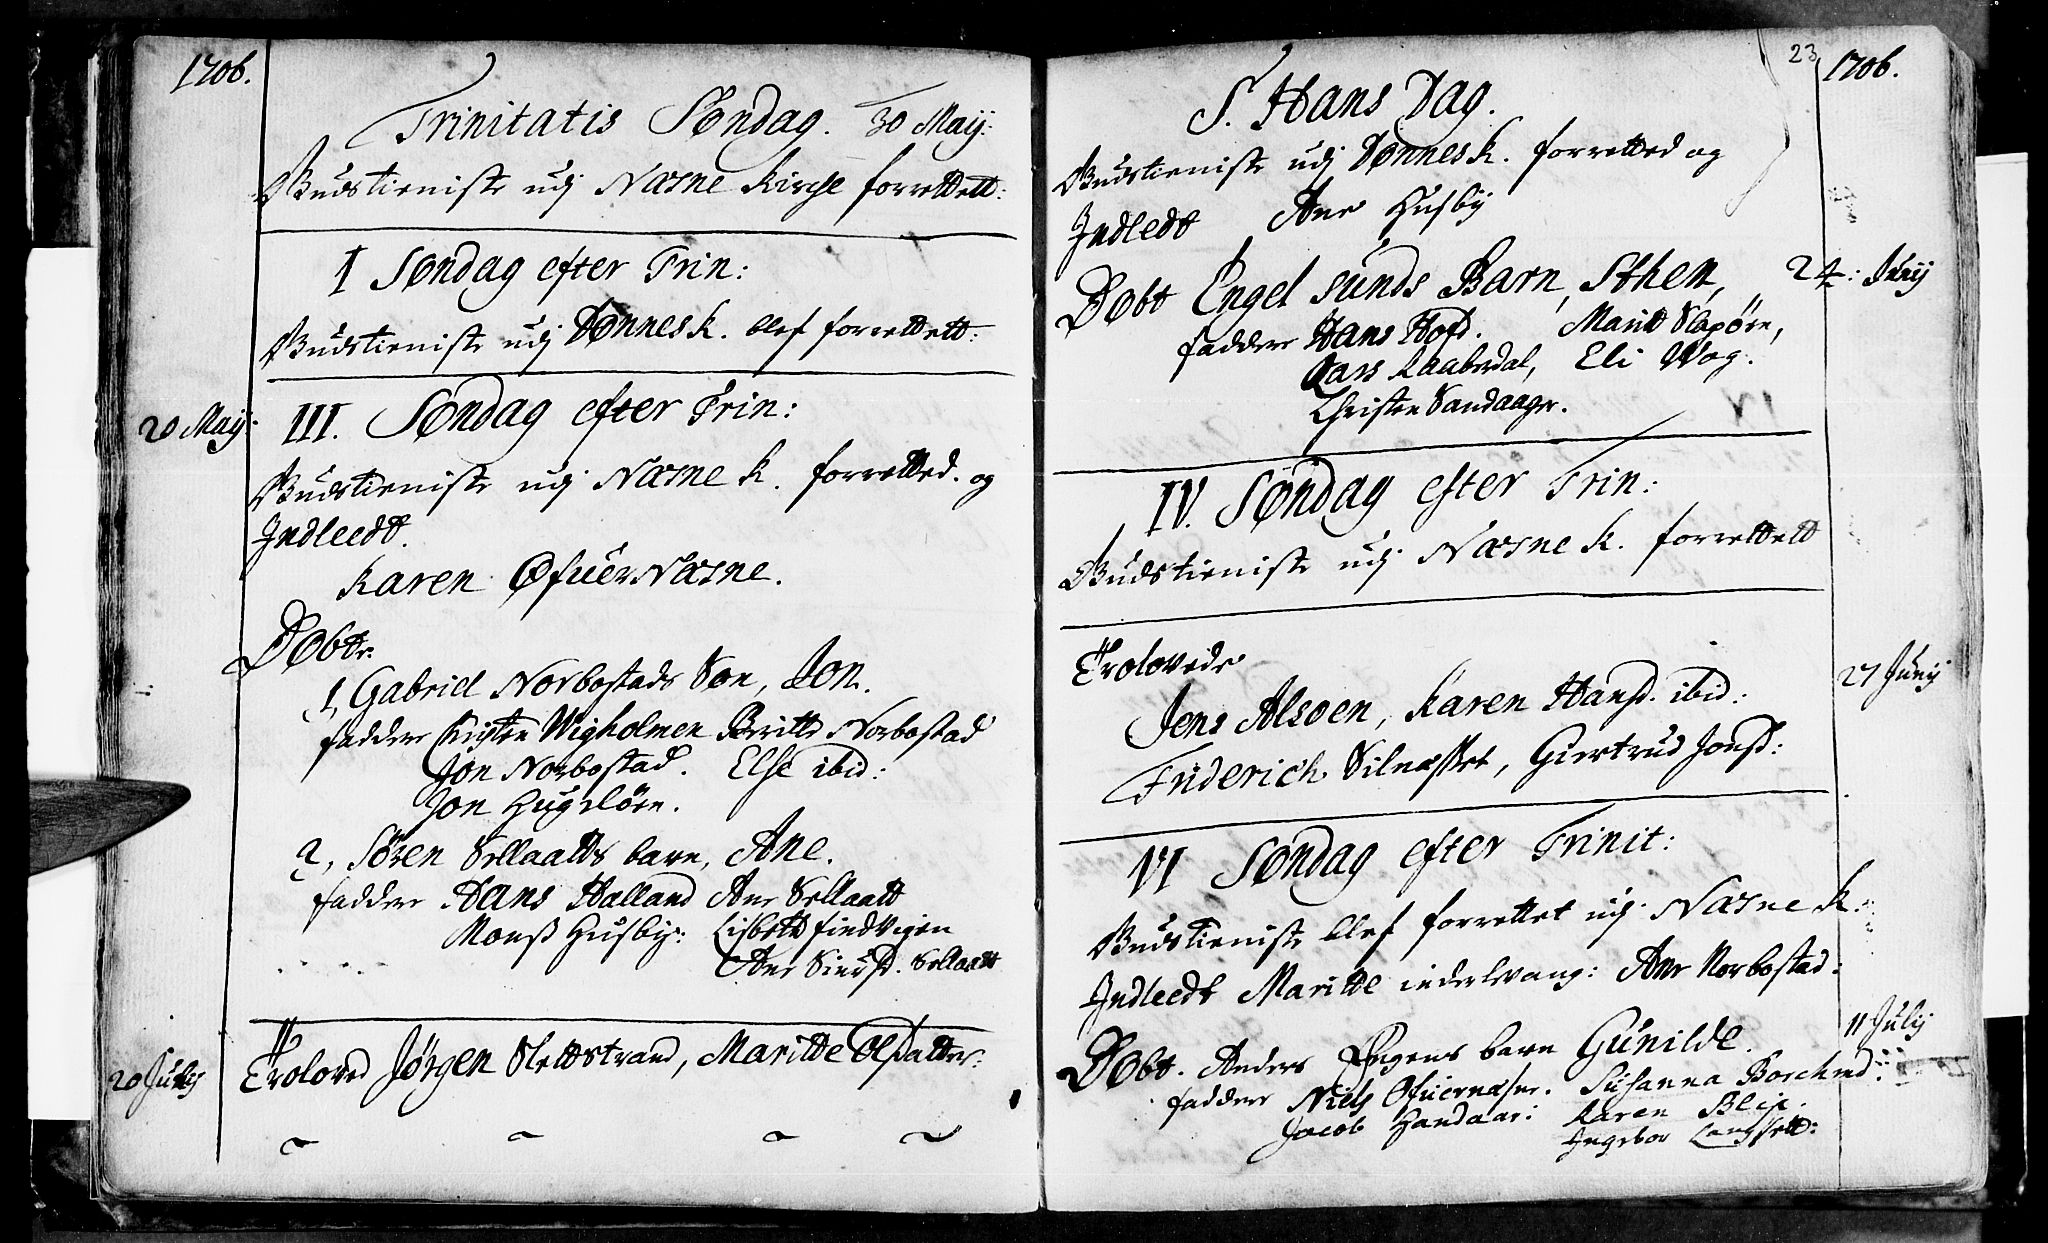 1706.
Trinitatis Søndag. 30 Maij:
Gudstieniste udj Næsne Kirche forrettett:
I Søndag efter Trin:
Gudstieniste udj Dønnes k. blef forrettett:
20 Maij: III. Søndag efter Trin:
Gudstieniste udj Næsne k. forretted. og
Indleedt.
Karen Øfuer Næsne.
Døbte.
1, Gabriel Norbostads Søn, Jon.
faddere Christen Wigholmen Berritte Norbostad
Jon Norbostad. Else ibid:
Jon Hugeløen.
2, Sören Sellaatts barn, Ane.
faddere Hans Halland Ane Sellaatt
Monss Husby: Lisbeth Findvigen
Ane Siursd. Sellaatt
20 Julij Troloved Jörgen Slettstrand, Maritte Olsdatter:
23
1706.
S. Hans Dag.
Gudstieniste udj Dønnes k. forretted og
Indledt Ane Husby
Døbt Engel Sunds Barn, Sthen, 24: Junij
faddere Hans Hofd. Maritt Slapøen,
Lars Kaaberdal, Eli Wog.
Christen Sandaager.
IV. Søndag efter Trin:
Gudstieniste udj Næsne k. forrettett
Trolovede
27 Junij
Jens Alsøen, Karen Hansd. ibid:
Friderich Silnæsset, Giertrud Jonsd:
VI Søndag efter Trinit:
Gudstieniste blef forrettet udj Næsne k:
Indleedt Maritte inderlvang: Ane Norbostad:
11 Julij
Døbt. Anders Engens barn Gunilde.
faddere Niels Ofuernæsne. Susanna Borchred:
Jacob Handaar: Karen Blix.
Ingebor Langsett: